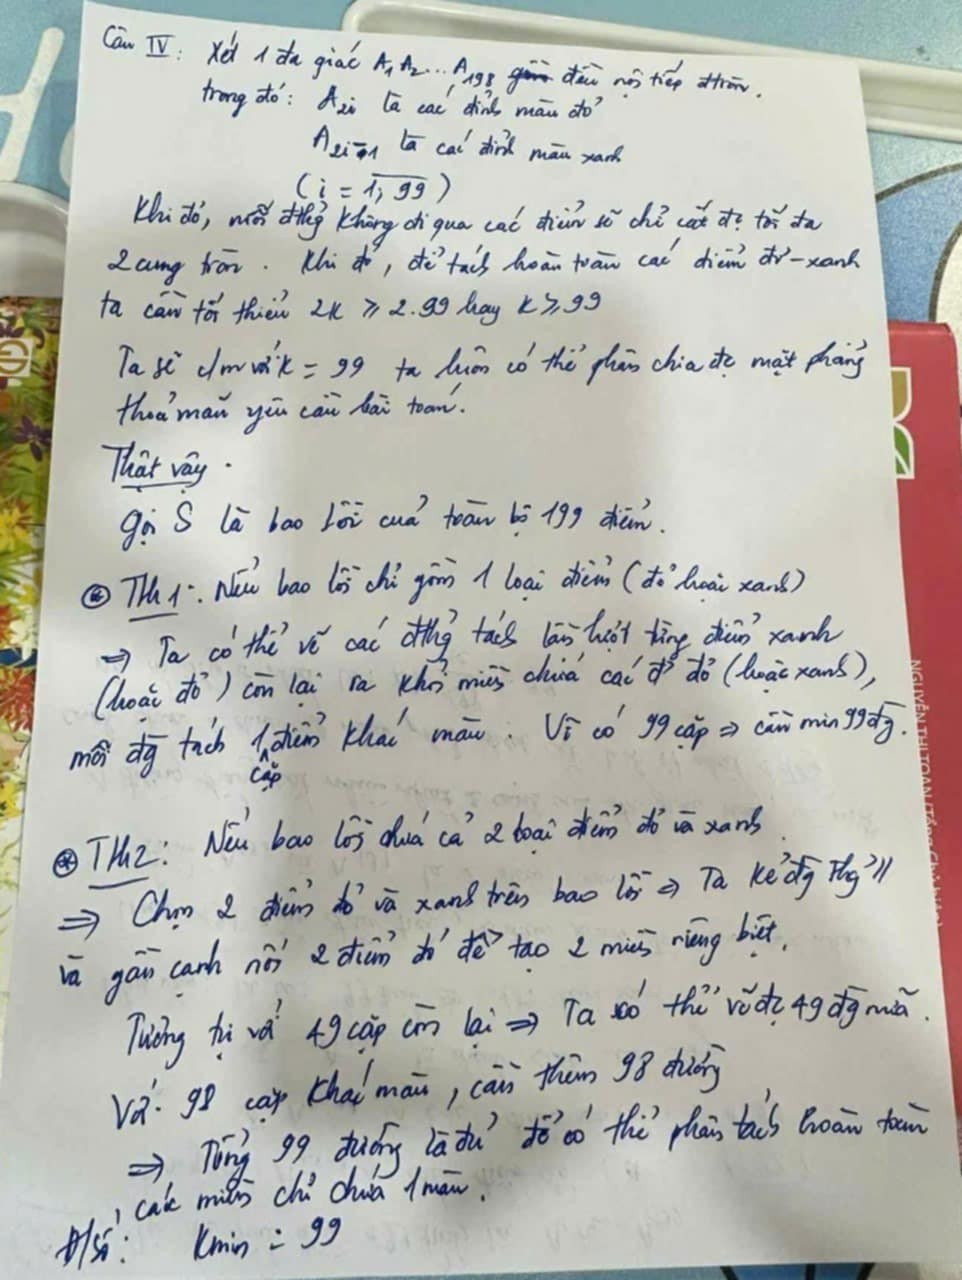 Câu IV: Xét 1 đa giác A₁A₂...A₁98 đều nội tiếp đtròn.
trong đó: A2i là các đỉnh màu đỏ
A2i-1 là các đỉnh màu xanh
(i = 1,99)
Khi đó, mỗi đthg không đi qua các điểm sẽ chỉ cắt đc tối đa
2 cung tròn. Khi đó, để tách hoàn toàn các điểm đỏ-xanh
ta cần tối thiểu 2k ≥ 2.99 hay k ≥ 99
Ta sẽ c/m với k = 99 ta luôn có thể phân chia đc mặt phẳng
thoả mãn yêu cầu bài toán.
Thật vậy.
Gọi S là bao lồi của toàn bộ 199 điểm.
TH1: Nếu bao lồi chỉ gồm 1 loại điểm (đỏ hoặc xanh)
⇒ Ta có thể vẽ các đthg tách lần lượt từng điểm xanh
(hoặc đỏ) còn lại ra khỏi miền chứa các đ' đỏ (hoặc xanh),
mỗi đg tách 1 cặp điểm khác màu. Vì có 99 cặp ⇒ cần min 99 đg.
TH2: Nếu bao lồi chứa cả 2 loại điểm đỏ và xanh.
⇒ Chọn 2 điểm đỏ và xanh trên bao lồi ⇒ Ta kẻ đg thg //
và gần cạnh nối 2 điểm đó để tạo 2 miền riêng biệt.
Tương tự với 49 cặp còn lại ⇒ Ta có thể vẽ đc 49 đg nữa.
Với 98 cặp khác màu, cần thêm 98 đường
⇒ Tổng 99 đường là đủ để có thể phân tách hoàn toàn
, các miền chỉ chứa 1 màu.
Đ/số: Kmin = 99
NGUYỄN THỊ TOAN